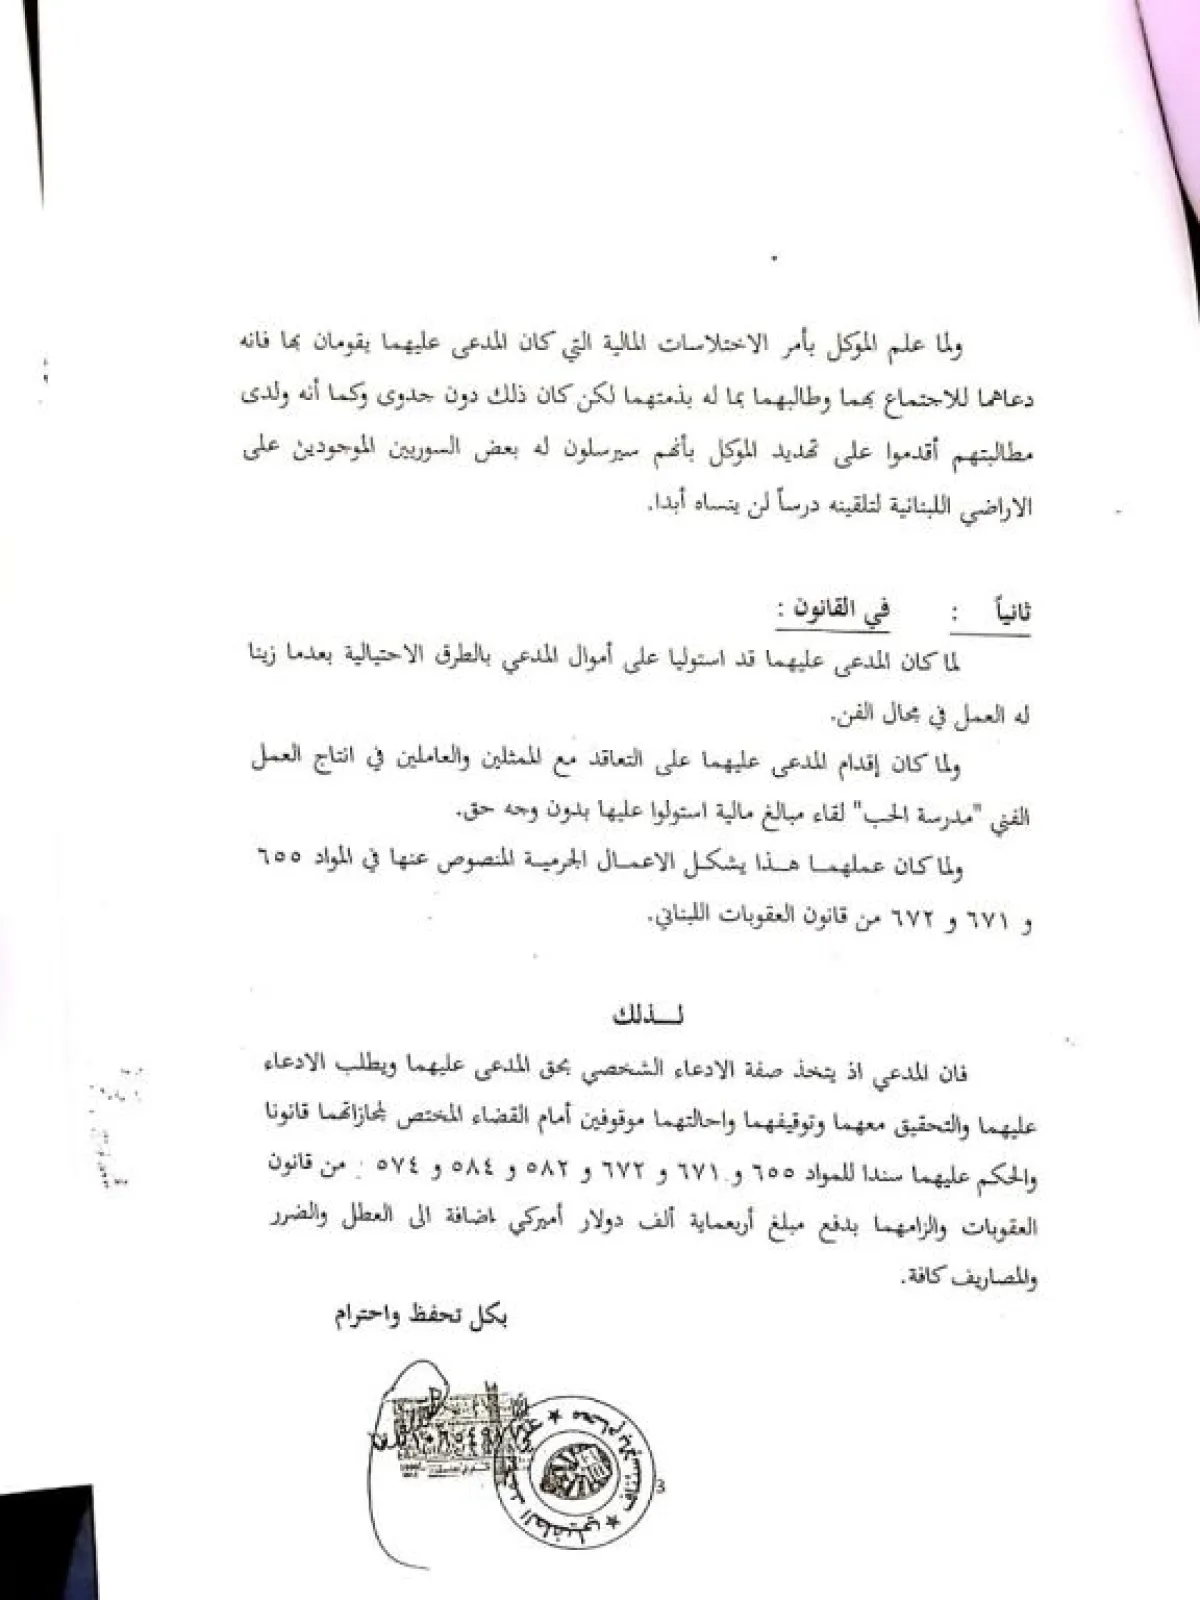 ولما علم الموكل بأمر الاختلاسات المالية التي كان المدعى عليهما يقومان بها فانه
دعاهما للاجتماع بهما وطالبهما بما له بذمتهما لكن كان ذلك دون جدوى وكما أنه ولدى
مطالبتهم أقدموا على تهديد الموكل بأنهم سيرسلون له بعض السوريين الموجودين على
الاراضي اللبنانية لتلقينه درساً لن ينساه أبدا.
ثانياً : في القانون :
لما كان المدعى عليهما قد استوليا على أموال المدعي بالطرق الاحتيالية بعدما زينا
له العمل في مجال الفن.
ولما كان إقدام المدعى عليهما على التعاقد مع الممثلين والعاملين في انتاج العمل
الفني "مدرسة الحب" لقاء مبالغ مالية استولوا عليها بدون وجه حق.
ولما كان عملهما هذا يشكل الاعمال الجرمية المنصوص عنها في المواد ٦٥٥
و ٦٧١ و ٦٧٢ من قانون العقوبات اللبناني.
لـذلك
فان المدعي اذ يتخذ صفة الادعاء الشخصي بحق المدعى عليهما ويطلب الادعاء
عليهما والتحقيق معهما وتوقيفهما واحالتهما موقوفين أمام القضاء المختص لمجازاتهما قانونا
والحكم عليهما سندا للمواد ٦٥٥ و ٦٧١ و ٦٧٢ و ٥٨٢ و ٥٨٤ و ٥٧٤ من قانون
العقوبات والزامهما بدفع مبلغ أربعماية ألف دولار أميركي اضافة الى العطل والضرر
والمصاريف كافة.
بكل تحفظ واحترام
3